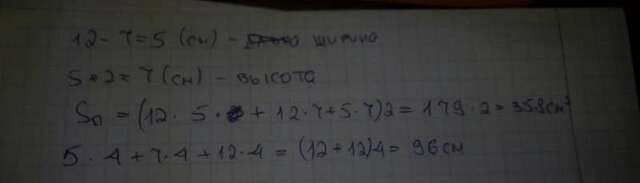 12 - 7 = 5 (см) - ширина
5 + 2 = 7 (см) - высота
Sп = (12 · 5 + 12 · 7 + 5 · 7) 2 = 179 · 2 = 358 см²
5 · 4 + 7 · 4 + 12 · 4 = (12 + 12) 4 = 96 см